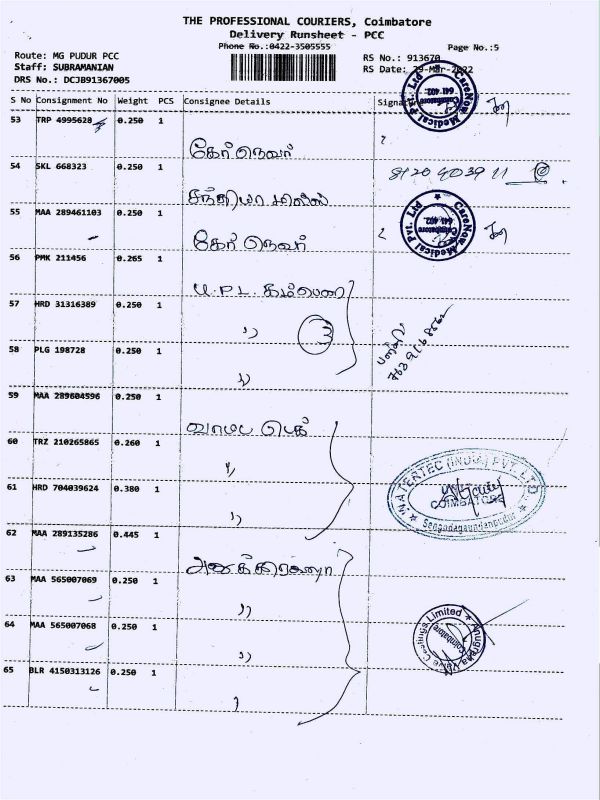 THE PROFESSIONAL COURIERS, Coimbatore
Delivery Runsheet - PCC
Phone No.:0422-3505555
Page No.:5
Route: MG PUDUR PCC
RS No.: 913670
Staff: SUBRAMANIAN
RS Date: 29-Mar-2022
DRS No.: DCJB91367005
S No Consignment No Weight PCS Consignee Details Signature
53 TRP 4995628 0.250 1
கேர் நெவர்
54 SKL 668323 0.250 1
8120403911
சந்தியா மில்ஸ்
55 MAA 289461103 0.250 1
கேர் நெவர்
56 PMK 211456 0.265 1
U.P.L.
57 HRD 31316389 0.250 1
3
58 PLG 198728 0.250 1
59 MAA 289604596 0.250 1
60 TRZ 210265865 0.260 1
61 HRD 704039624 0.380 1
62 MAA 289135286 0.445 1
63 MAA 565007069 0.250 1
64 MAA 565007068 0.250 1
65 BLR 4150313126 0.250 1
CareNow Medical Pvt. Ltd
Coimbatore
641 402.
CareNow Medical Pvt. Ltd
Coimbatore
641 402.
WATERTEC (INDIA) PVT. LTD.
COIMBATORE
Coimbatore